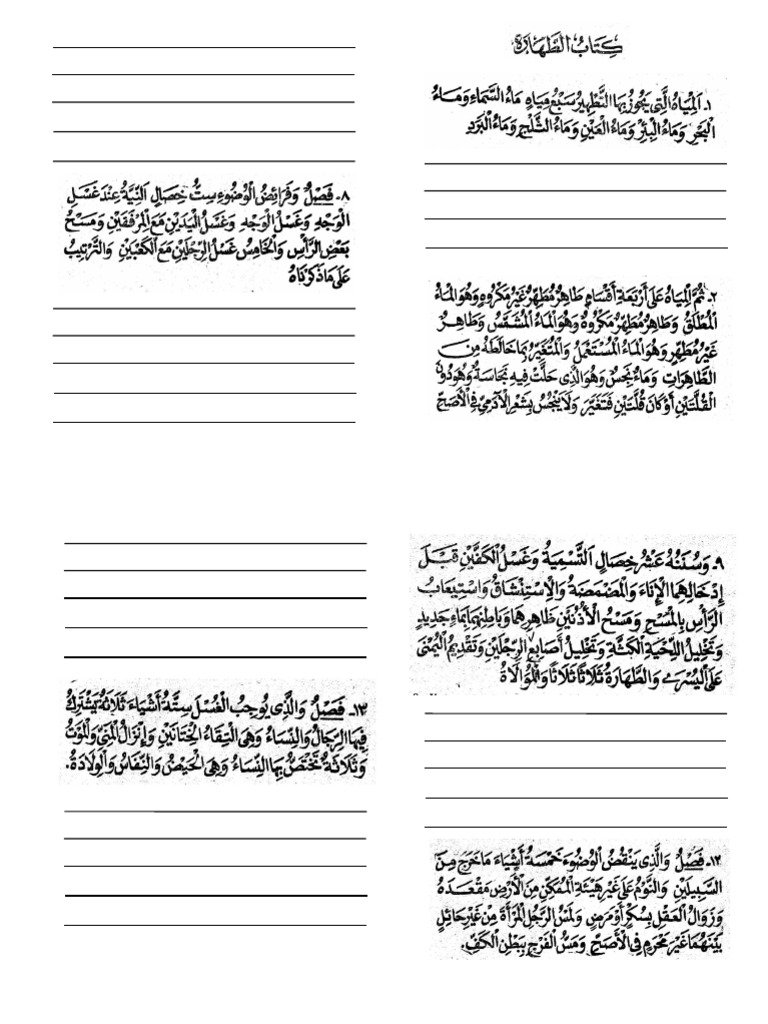 كِتَابُ الطَّهَارَةِ
١. اَلْمِيَاهُ الَّتِى يَجُوْزُ بِهَا التَّطْهِيْرُ سَبْعُ مِيَاهٍ مَاءُ السَّمَاءِ وَمَاءُ
الْبَحْرِ وَمَاءُ الْبِئْرِ وَمَاءُ الْعَيْنِ وَمَاءُ الثَّلْجِ وَمَاءُ الْبَرَدِ
٢. ثُمَّ الْمِيَاهُ عَلَى أَرْبَعَةِ أَقْسَامٍ طَاهِرٌ مُطَهِّرٌ غَيْرُ مَكْرُوْهٍ وَهُوَ الْمَاءُ
الْمُطْلَقُ وَطَاهِرٌ مُطَهِّرٌ مَكْرُوْهٌ وَهُوَ الْمَاءُ الْمُشَمَّسُ وَطَاهِرٌ
غَيْرُ مُطَهِّرٍ وَهُوَ الْمَاءُ الْمُسْتَعْمَلُ وَالْمُتَغَيِّرُ بِمَا خَالَطَهُ مِنَ
الطَّاهِرَاتِ وَمَاءٌ نَجِسٌ وَهُوَ الَّذِى حَلَّتْ فِيْهِ نَجَاسَةٌ وَهُوَ دُوْنَ
الْقُلَّتَيْنِ أَوْ كَانَ قُلَّتَيْنِ فَتَغَيَّرَ وَلَا يَنْجُسُ بِشَعْرِ الْآدَمِيِّ فِى الْأَصَحِّ
٨. فَصْلٌ وَفَرَائِضُ الْوُضُوْءِ سِتُّ خِصَالٍ اَلنِّيَّةُ عِنْدَ غَسْلِ
الْوَجْهِ وَغَسْلُ الْوَجْهِ وَغَسْلُ الْيَدَيْنِ مَعَ الْمِرْفَقَيْنِ وَمَسْحُ
بَعْضِ الرَّأْسِ وَالْخَامِسُ غَسْلُ الرِّجْلَيْنِ مَعَ الْكَعْبَيْنِ وَالتَّرْتِيْبُ
عَلَى مَا ذَكَرْنَاهُ
٩. وَسُنَنُهُ عَشْرُ خِصَالٍ اَلتَّسْمِيَةُ وَغَسْلُ الْكَفَّيْنِ قَبْلَ
إِدْخَالِهِمَا الْإِنَاءَ وَالْمَضْمَضَةُ وَالْاِسْتِنْشَاقُ وَاسْتِيْعَابُ
الرَّأْسِ بِالْمَسْحِ وَمَسْحُ الْأُذُنَيْنِ ظَاهِرِهِمَا وَبَاطِنِهِمَا بِمَاءٍ جَدِيْدٍ
وَتَخْلِيْلُ اللِّحْيَةِ الْكَثَّةِ وَتَخْلِيْلُ أَصَابِعِ الرِّجْلَيْنِ وَتَقْدِيْمُ الْيُمْنَى
عَلَى الْيُسْرَى وَالطَّهَارَةُ ثَلَاثًا ثَلَاثًا وَالْمُوَالَاةُ
١٢. فَصْلٌ وَالَّذِى يَنْقُضُ الْوُضُوْءَ خَمْسَةُ أَشْيَاءَ مَا خَرَجَ مِنَ
السَّبِيْلَيْنِ وَالنَّوْمُ عَلَى غَيْرِ هَيْئَةِ الْمُمَكِّنِ مِنَ الْأَرْضِ مَقْعَدَهُ
وَزَوَالُ الْعَقْلِ بِسُكْرٍ أَوْ مَرَضٍ وَلَمْسُ الرَّجُلِ الْمَرْأَةَ مِنْ غَيْرِ حَائِلٍ
بَيْنَهُمَا غَيْرَ مَحْرَمٍ فِى الْأَصَحِّ وَمَسُّ الْفَرْجِ بِبَطْنِ الْكَفِّ.
١٣. فَصْلٌ وَالَّذِى يُوْجِبُ الْغُسْلَ سِتَّةُ أَشْيَاءَ ثَلَاثَةٌ يَشْتَرِكُ
فِيْهَا الرِّجَالُ وَالنِّسَاءُ وَهِىَ الْتِقَاءُ الْخِتَانَيْنِ وَإِنْزَالُ الْمَنِىِّ وَالْمَوْتُ
وَثَلَاثَةٌ تَخْتَصُّ بِهَا النِّسَاءُ وَهِىَ الْحَيْضُ وَالنِّفَاسُ وَالْوِلَادَةُ.